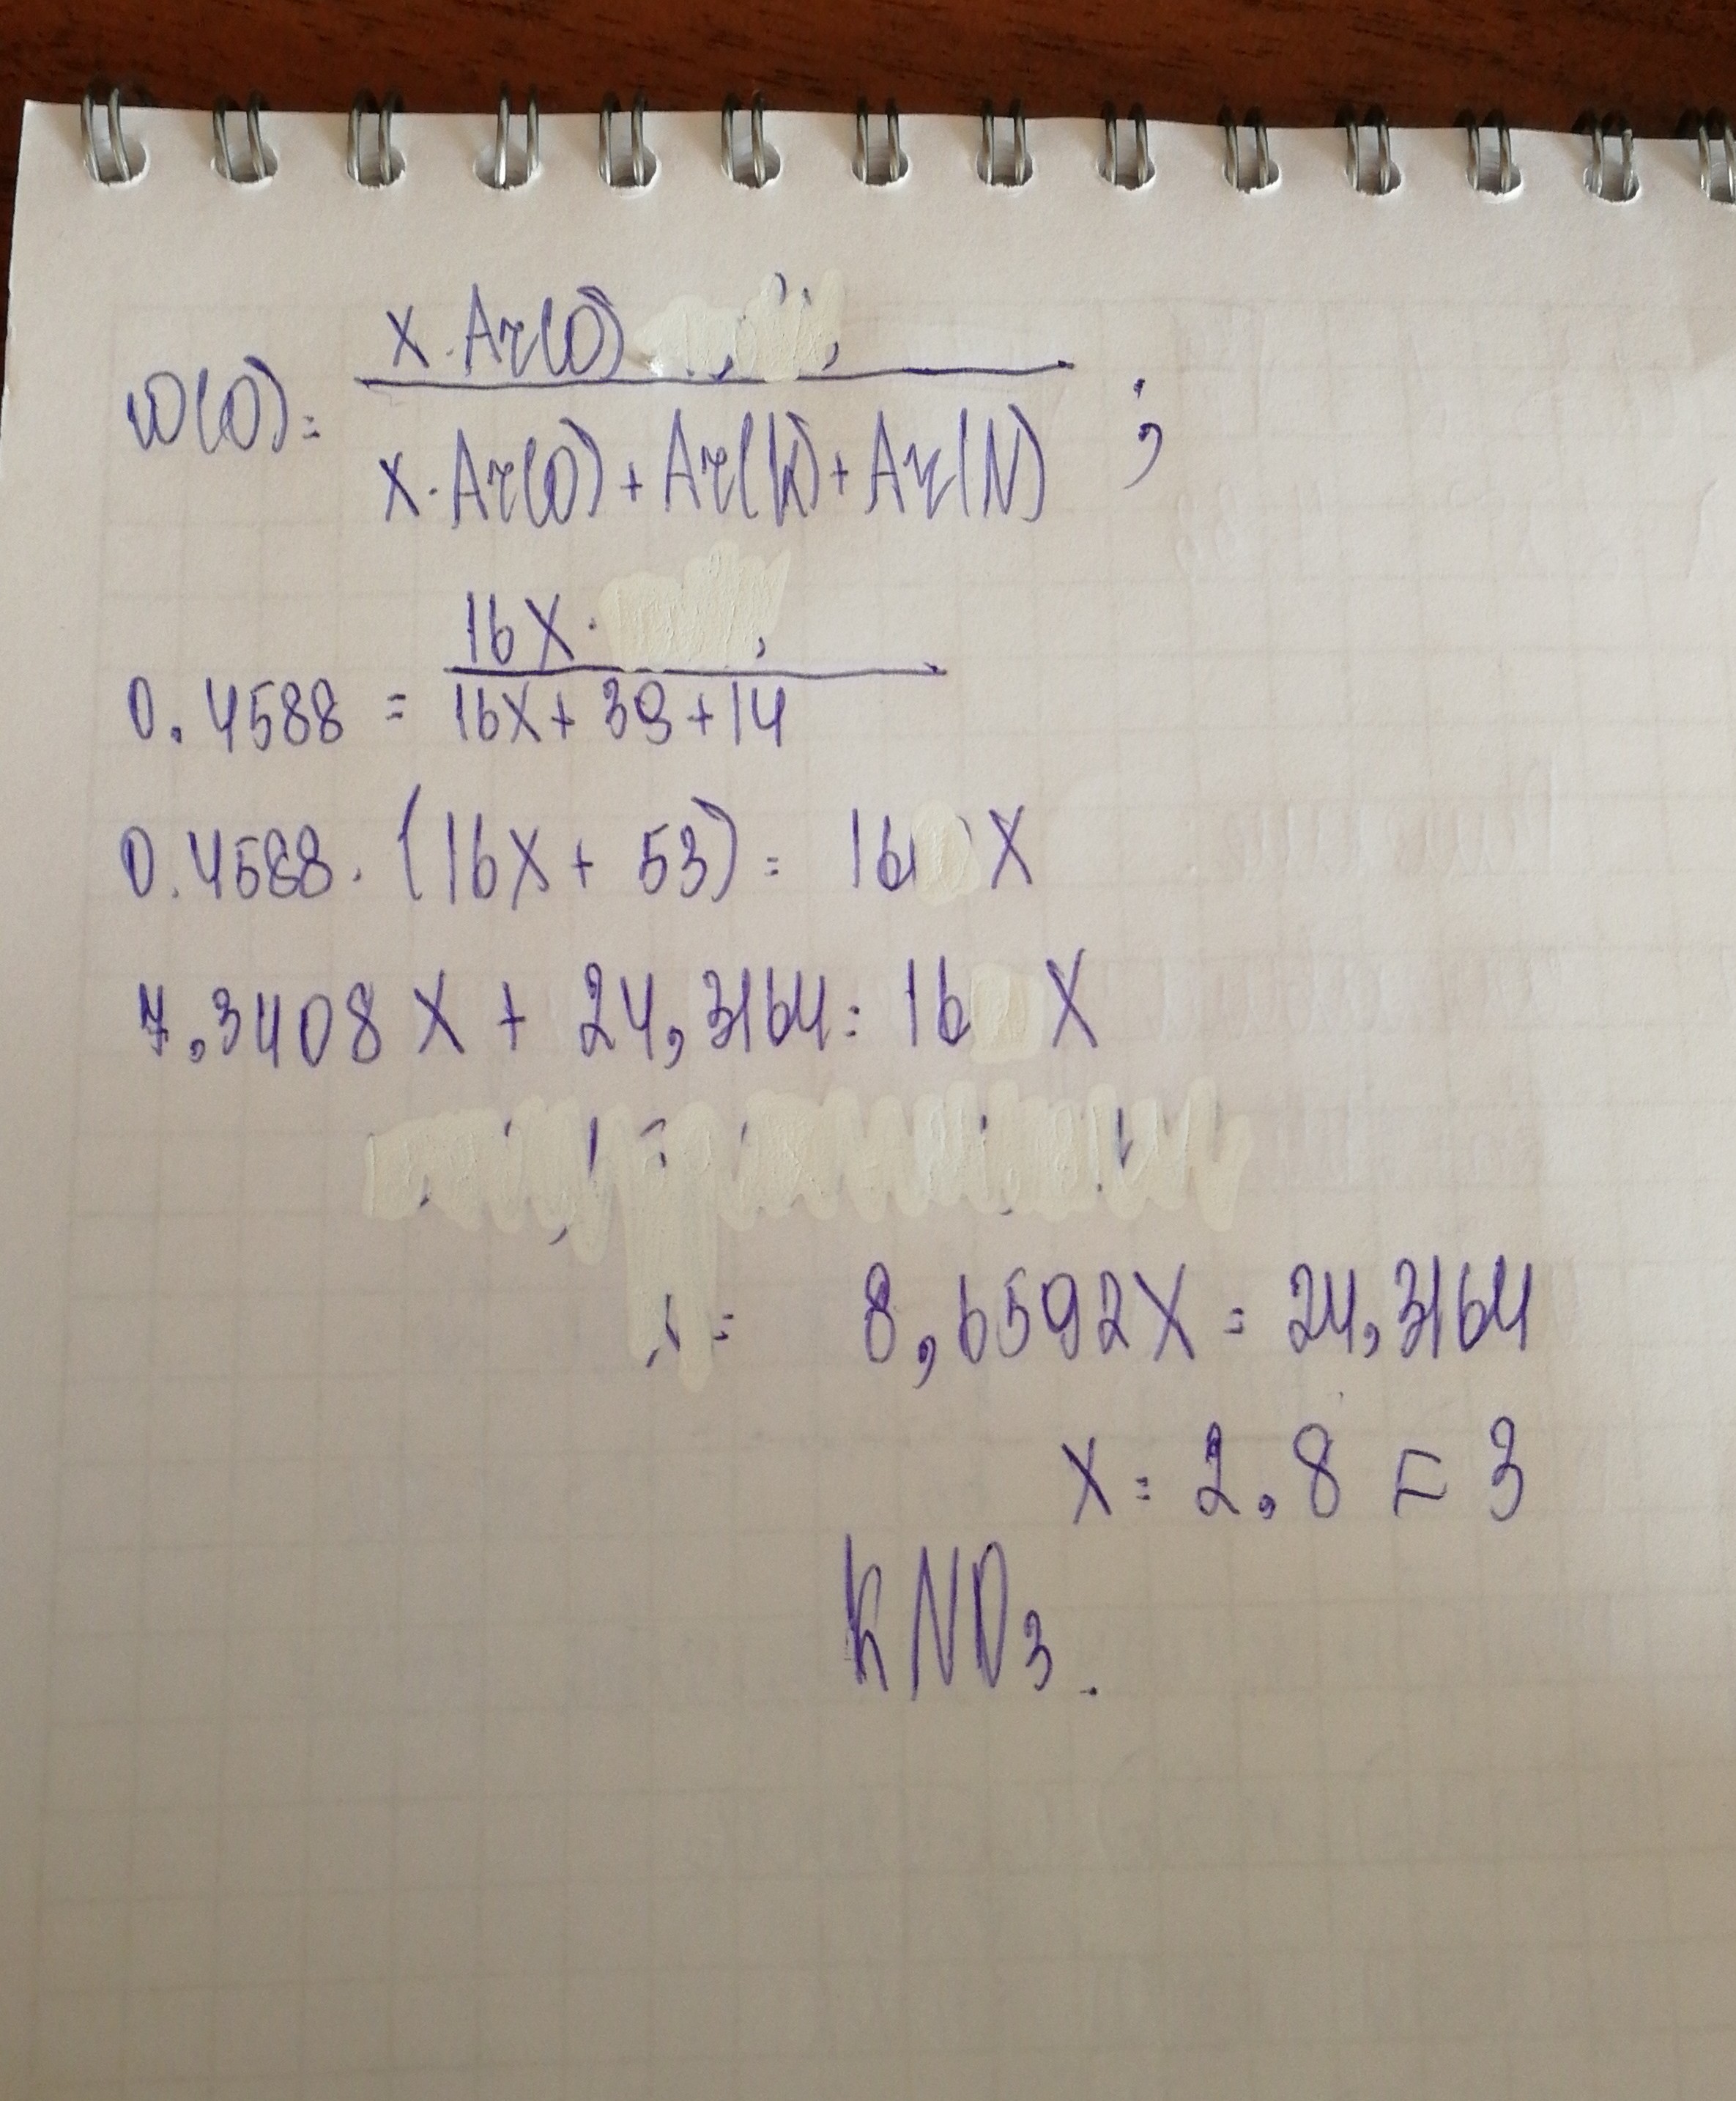 w(O)=
x·Ar(O)
x·Ar(O)+Ar(K)+Ar(N) ;
16x·
0.4588 =
16x+39+14
0.4588·(16x+53)= 16 x
7,3408x + 24,3164= 16 x
= 8,6592x = 24,3164
x= 2.8 = 3
KNO3.